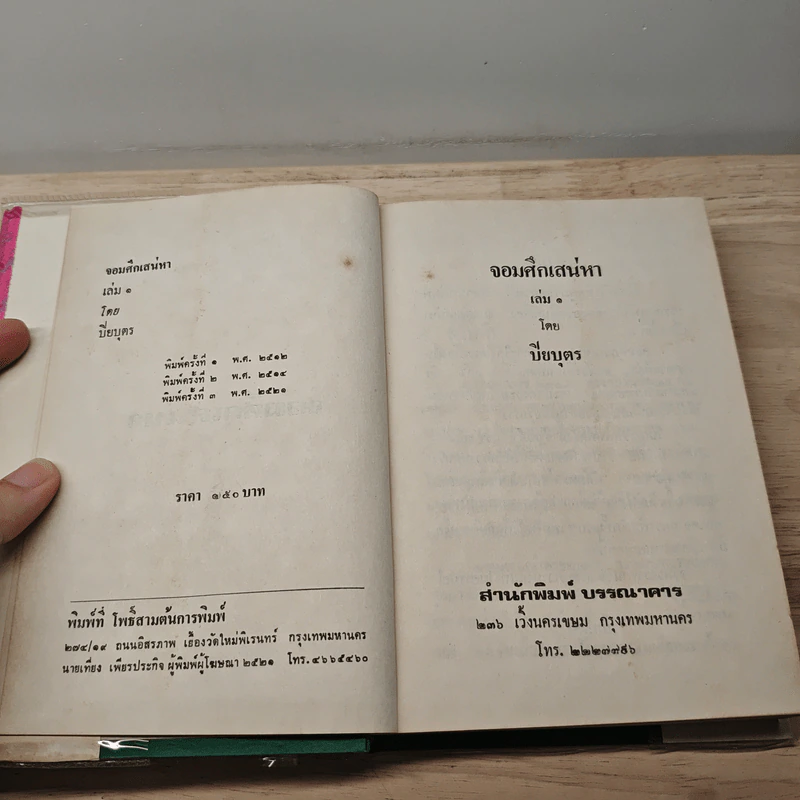 จอมศึกเสน่หา
เล่ม ๑
โดย
ปิยบุตร
พิมพ์ครั้งที่ ๑ พ.ศ. ๒๕๑๒
พิมพ์ครั้งที่ ๒ พ.ศ. ๒๕๑๔
พิมพ์ครั้งที่ ๓ พ.ศ. ๒๕๒๑
ราคา ๑๕๐ บาท
พิมพ์ที่ โพธิ์สามต้นการพิมพ์
๒๗๔/๑๙ ถนนอิสรภาพ เยื้องวัดใหม่พิเรนทร์ กรุงเทพมหานคร
นายเที่ยง เพียรประกิจ ผู้พิมพ์ผู้โฆษณา ๒๕๒๑ โทร. ๔๖๖๕๔๖๐
จอมศึกเสน่หา
เล่ม ๑
โดย
ปิยบุตร
สำนักพิมพ์ บรรณาคาร
๒๓๖ เวิ้งนครเขษม กรุงเทพมหานคร
โทร.